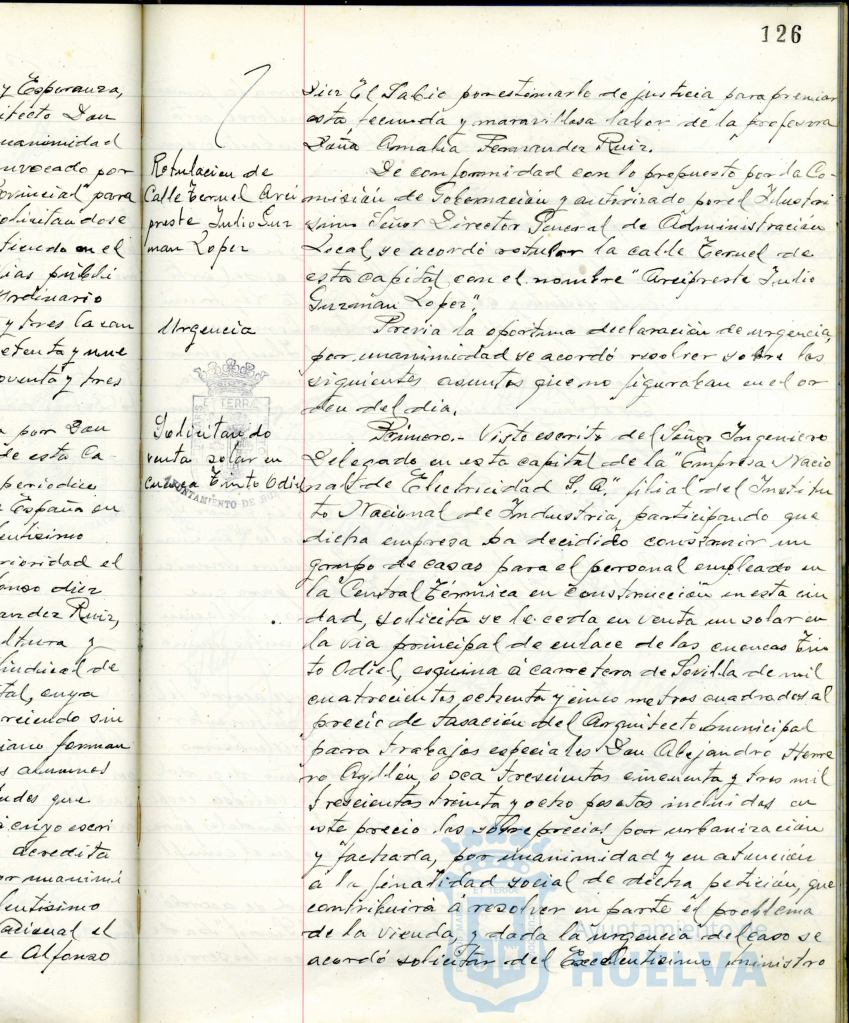 126
y Esperanza,
itecto Don
unanimidad
onvocado por
rovincial" para
olicitandose
tiendo en el
ias públi
ordinario
y tres la can
etenta y nue
oventa y tres
a por Don
de esta Ca
periodica
España en
lentisimo
rioridad el
fonso diez
andez Ruiz,
ultura y
indical de
tal, cuya
reciendo sin
forman
alumnos
tudes que
a cuyo escri
acredita
or unanimi
lentisimo
acional el
e Alfonso
Rotulacion de
Calle Teruel Arci
preste Julio Guz
man Lopez
Urgencia
Solicitando
venta solar en
cuenca Tinto Odiel
AYUNTAMIENTO DE
Diez El Sabio por estimarlo de justicia para premiar
esta fecunda y maravillosa labor de la profesora
Doña Amalia Fernandez Ruiz.
De conformidad con lo propuesto por la Co-
misión de Gobernación y autorizado por el Ilustri
simo Señor Director General de Administración
Local, se acordó rotular la calle Teruel de
esta capital, con el nombre "Arcipreste Julio
Guzmán Lopez".
Previa la oportuna declaración de urgencia,
por unanimidad se acordó resolver sobre los
siguientes asuntos que no figuraban en el or
den del dia.
Primero.- Visto escrito del Señor Ingeniero
Delegado en esta capital de la "Empresa Nacio
nal de Electricidad S. A." filial del Institu
to Nacional de Industria, participando que
dicha empresa ha decidido construir un
grupo de casas para el personal empleado en
la Central Térmica en construcción en esta ciu
dad, solicita se le ceda en venta un solar en
la via principal de enlace de las cuencas Tin
to Odiel, esquina á carretera de Sevilla de mil
cuatrocientos ochenta y cinco metros cuadrados al
precio de tasación del Arquitecto municipal
para trabajos especiales Don Alejandro Herre
ro Ayllón, o sea trescientas cincuenta y tres mil
trescientas treinta y ocho pesetas incluidos en
este precio los sobreprecios por urbanización
y fachada, por unanimidad y en atención
a la finalidad social de dicha petición, que
contribuirá á resolver en parte el problema
de la vivienda, y dada la urgencia del caso se
acordó solicitar del Excelentisimo ministro
Ayuntamiento de
HUELVA